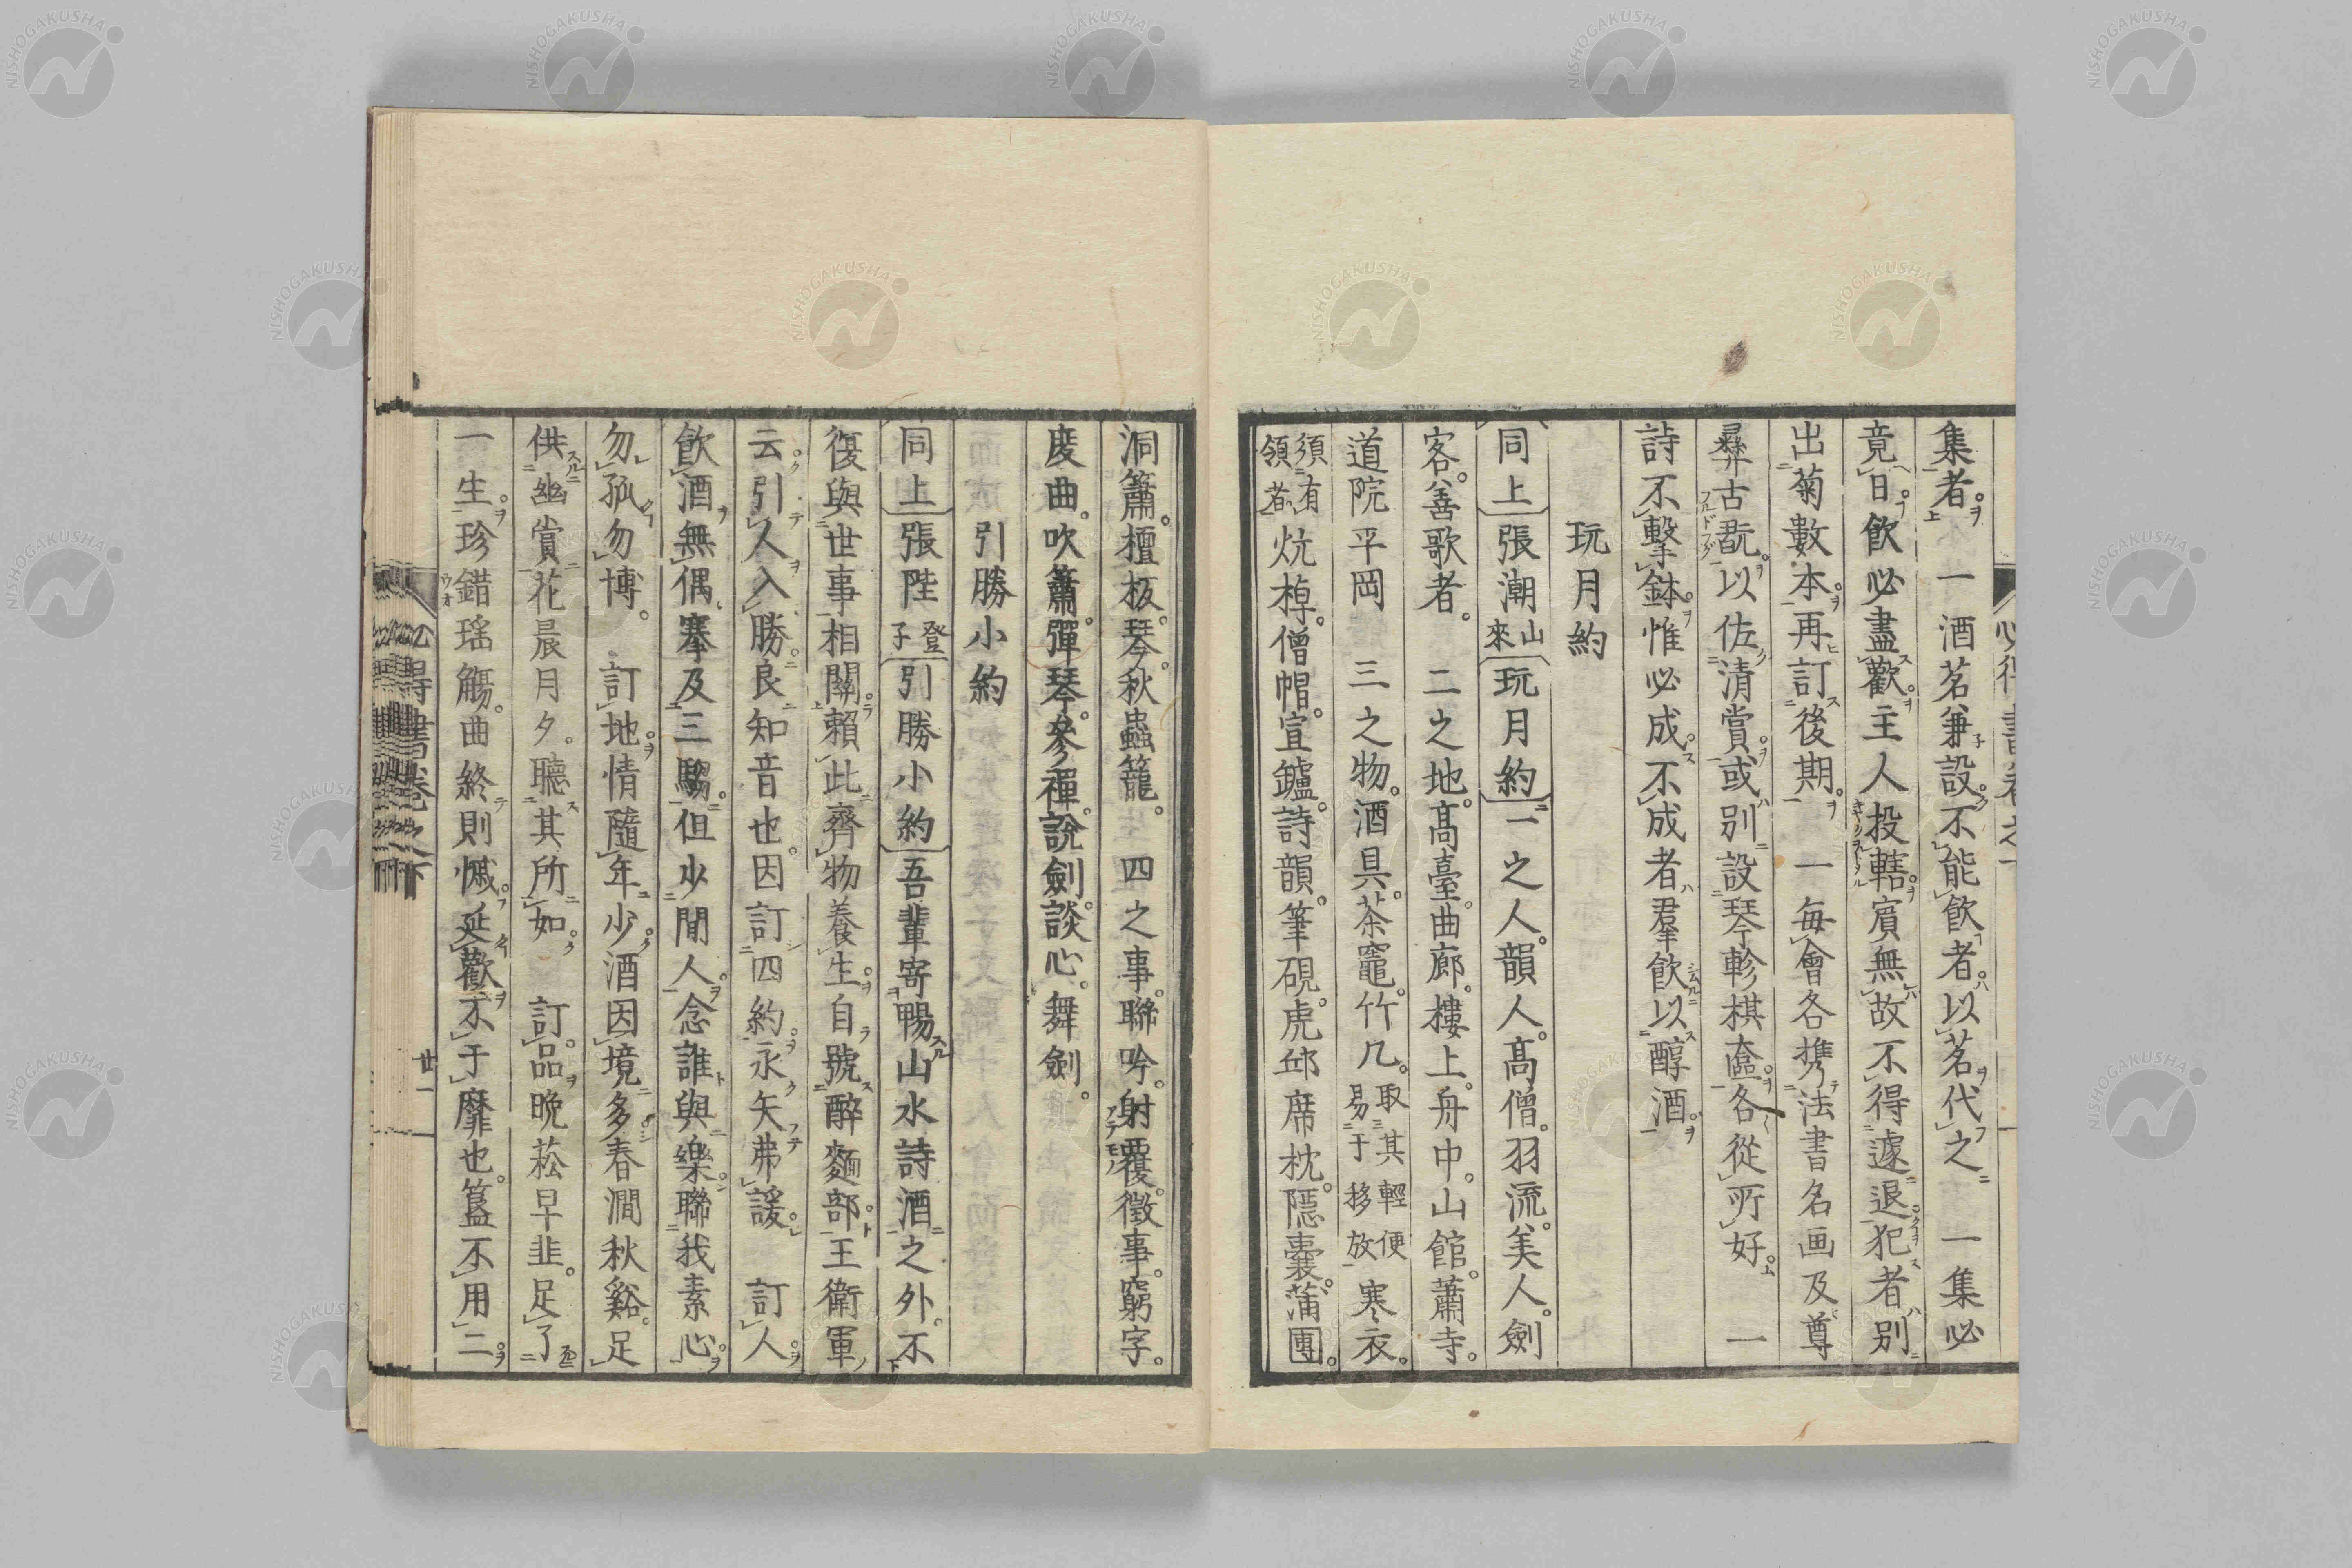 集者。一酒茗兼設。不能飲者。以茗代之　一集必
竟日。飲必盡歡。主人投轄。賓無故不得遽退。犯者別
出菊數本。再訂後期。　一每會各携法書名画及尊
彛古翫。以佐清賞。或別設琴軫棋奩。各從所好。　一
詩不擊鉢。惟必成。不成者羣飲以醇酒。
玩月約
同上　張潮山來　玩月約　一之人。韻人。高僧。羽流。美人。劍
客。善歌者。　二之地。高臺。曲廊。樓上。舟中。山館。蕭寺。
道院平岡　三之物。酒具。茶竈。竹几。取其輕便易于移放寒衣。
須有領者炕棹。僧帽。宣鑪。詩韻。筆硯。虎邱席枕。隱囊。蒲團。
洞簫。檀板。琴。秋蟲籠。　四之事。聯吟。射覆。徵事。窮字。
度曲。吹簫。彈琴。參禪。說劍。談心。舞劍。
引勝小約
同上　張陛登子　引勝小約　吾輩寄暢山水詩酒之外。不
復與世事相關。賴此齊物養生。自號醉麯部。王衛軍
云。引人入勝。良知音也。因訂四約。永矢弗諼　訂人。
飲酒無偶。搴及三騶。但少閒人。念誰與樂。聯我素心。
勿孤勿博。　訂地。情隨年少。酒因境多。春澗秋谿。足
供幽賞。花晨月夕。聽其所如。　訂品。晚菘早韭。足了
一生。珍錯瑤觴。曲終則慽。延歡不于靡也。簋不用二。
必得書卷之下
廿一
NISHOGAKUSHA